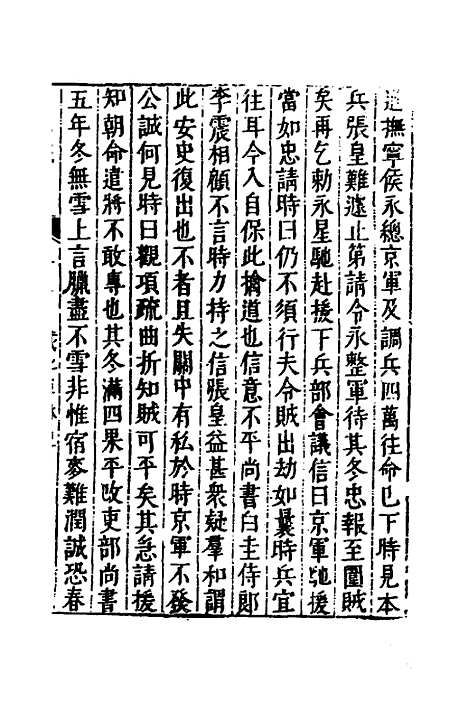 遣撫寧侯永總京軍及調兵四萬往命已下時見本
兵張皇難遽止第請令永整軍待其冬忠報至圍賊
矣再乞勅永星馳赴援下兵部會議信曰京軍馳援
當如忠請時曰仍不須行夫令賊出劫如曩時兵宜
往耳今入自保此擒道也信意不平尚書白圭侍郎
李震相顧不言時力持之信張皇益甚衆疑羣和謂
此安史復出也不者且失關中有私於時京軍不發
公誠何見時曰觀項疏曲折知賊可平矣其急請援
知朝命遣將不敢專也其冬滿四果平改吏部尚書
五年冬無雪上言臘盡不雪非惟宿麥難潤誠恐春